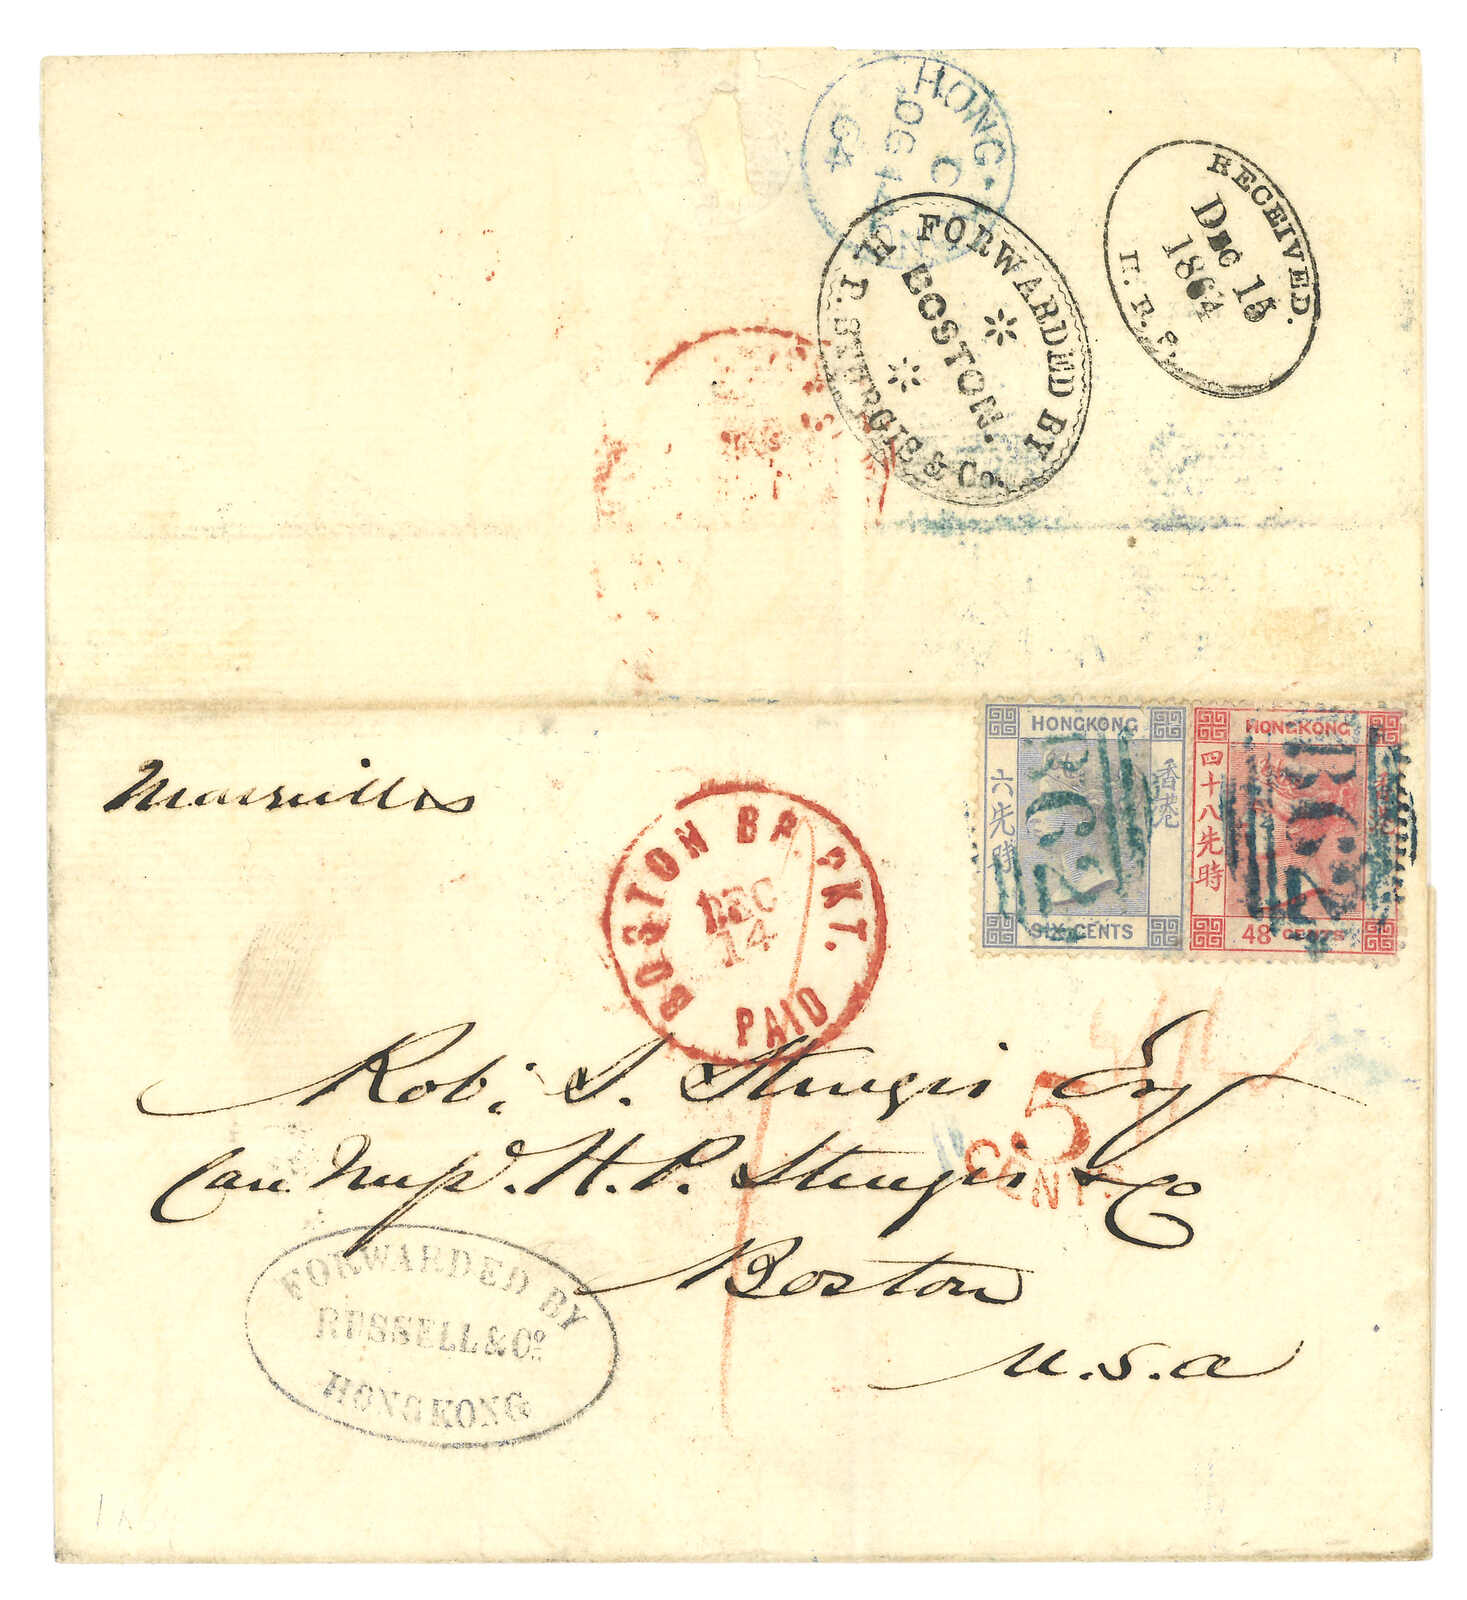 HONG
C
OC
64
FORWARDED BY
BOSTON.
H. P. STURGIS & Co.
RECEIVED.
DEC 15
1864
H. P. S.
Marseilles
BOSTON BR. PKT.
DEC
14
PAID
HONGKONG
六先時
香港
SIX CENTS
B62
HONGKONG
四十八先時
香港
48 CENTS
B62
Robt S. Sturgis Esq
Care Messrs. H. P. Sturgis & Co
Boston
U.S.A
5
CENTS
FORWARDED BY
RUSSELL & Co
HONGKONG